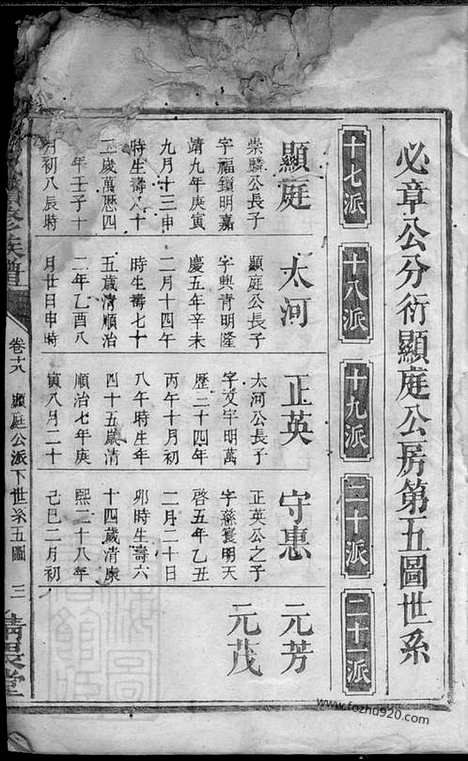 必章公分衍顯庭公房第五圖世系
十七派
十八派
十九派
二十派
二十一派
顯庭
崇麟公長子
字福鎮明嘉
靖九年庚寅
九月十三申
時生壽八十
三歲萬曆四
十年壬子十
月初八辰時
太河
顯庭公長子
字興青明隆
慶五年辛未
二月十四午
時生壽七十
五歲清順治
二年乙酉八
月廿日申時
正英
太河公長子
字文宇明萬
歷三十四年
丙午十月初
八午時生年
四十五歲清
順治七年庚
寅八月二十
守惠
正英公之子
字慈寰明天
啓五年乙丑
二月二十日
卯時生壽六
十四歲清康
熙二十八年
己巳二月初
元芳
元茂
族譜
顯庭公派下世系五圖
三
堂
www.fozhu920.com